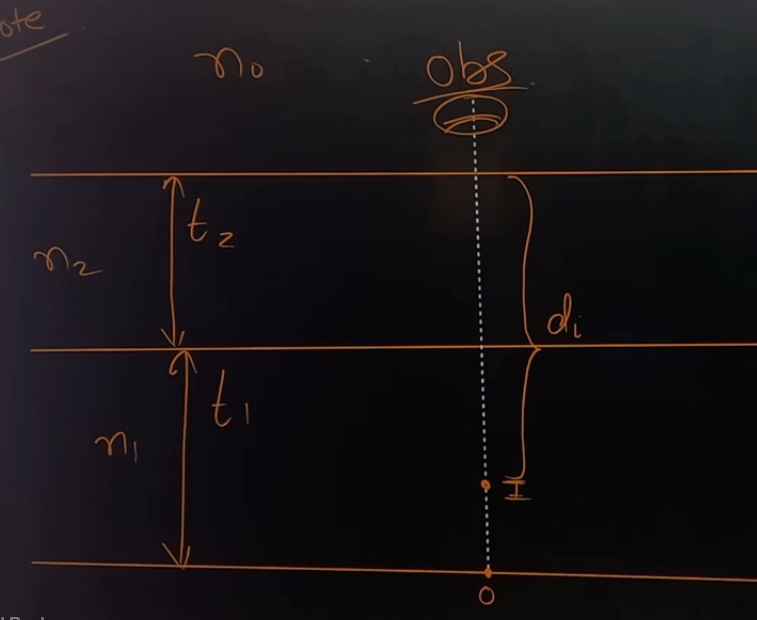 ote
n₀
Obs
t₂
n₂
dᵢ
t₁
n₁
I
O